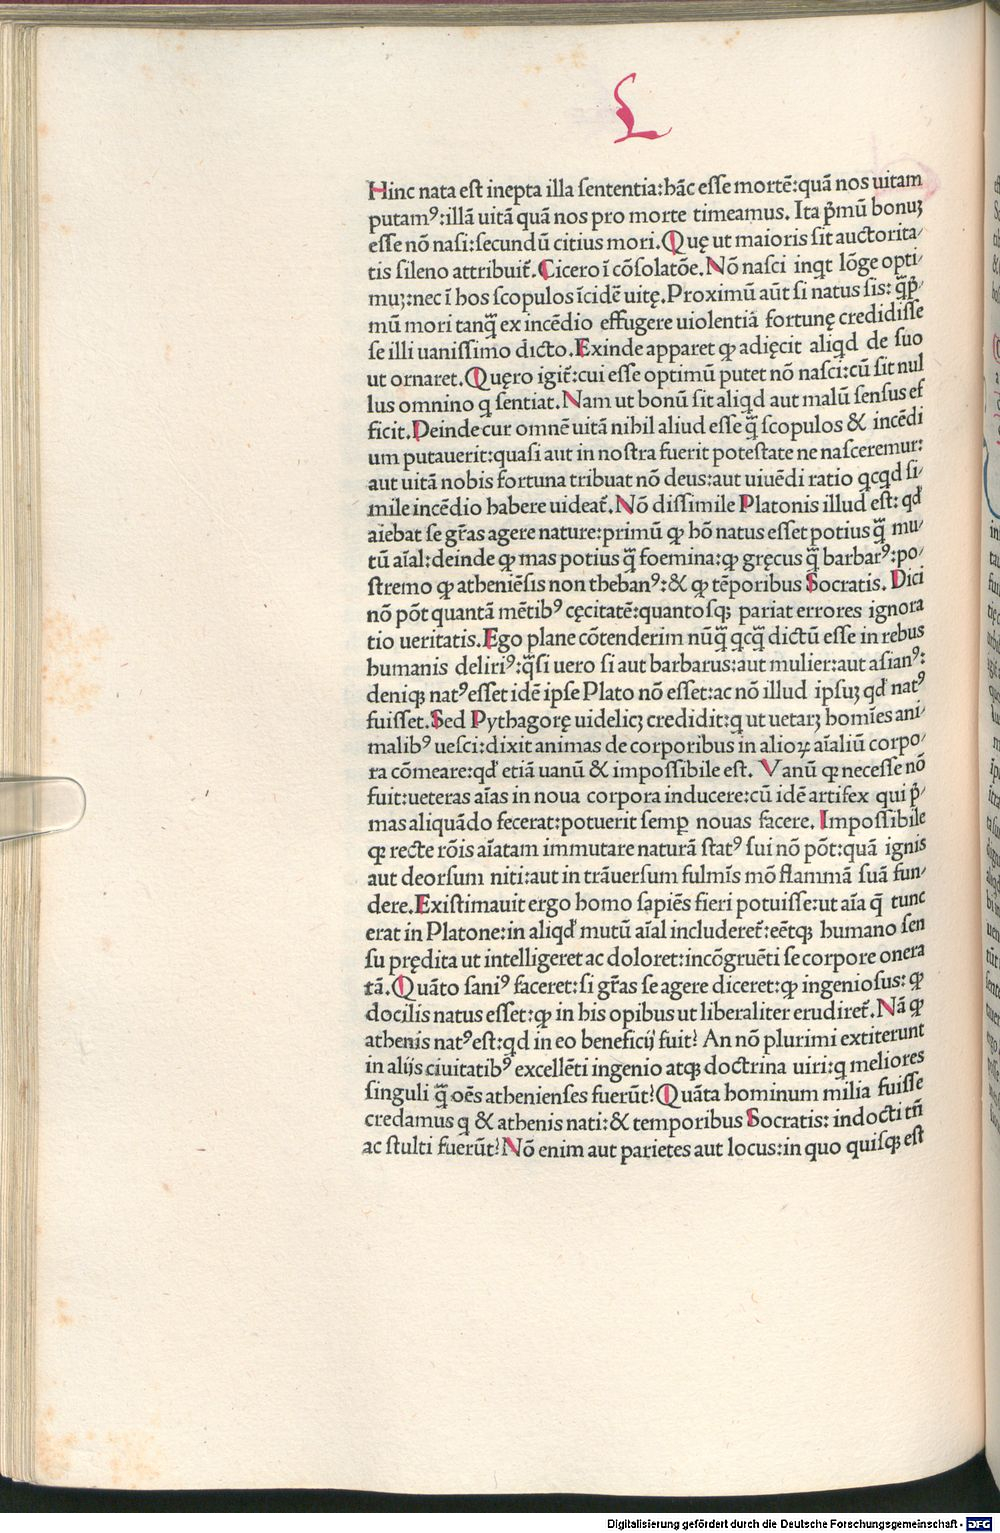 L
Hinc nata est inepta illa sententia:hāc esse mortē:quā nos uitam
putamꝰ:illā uitā quā nos pro morte timeamus. Ita p̄mū bonuꝫ
esse nō nasi:secundū citius mori.Quę ut maioris sit auctorita⸗
tis sileno attribuit̄.Cicero ī cōsolatōe.Nō nasci inqt lōge opti⸗
muꝫ:nec ī hos scopulos īcidē uitę.Proximū aūt si natus sis: q̄p̄⸗
mū mori tanq̄ ex incēdio effugere uiolentiā fortunę credidisse
se illi uanissimo dicto.Exinde apparet ꝙ adięcit aliqd de suo
ut ornaret.Quęro igit̄:cui esse optimū putet nō nasci:cū sit nul
lus omnino q sentiat.Nam ut bonū sit aliqd aut malū sensus ef
ficit.Deinde cur omnē uitā nihil aliud esse q̄ scopulos & incēdi
um putauerit:quasi aut in nostra fuerit potestate ne nasceremur:
aut uitā nobis fortuna tribuat nō deus:aut uiuēdi ratio qcqd si⸗
mile incēdio habere uideat̄.Nō dissimile Platonis illud est: qd̄
aiebat se gr̄as agere nature:primū ꝙ hō natus esset potius q̄ mu⸗
tū aīal:deinde ꝙ mas potius q̄ foemina:ꝙ gręcus q̄ barbarꝰ:po⸗
stremo ꝙ atheniēsis non thebanꝰ:& ꝙ tēporibus Socratis. Dici
nō pōt quantā mētibꝰ cęcitatē:quantosqꝫ pariat errores ignora
tio ueritatis.Ego plane cōtenderim nūq̄ qcq̄ dictū esse in rebus
humanis deliriꝰ:q̄si uero si aut barbarus:aut mulier:aut asianꝰ:
deniqꝫ natꝰ esset idē ipse Plato nō esset:ac nō illud ipsuꝫ qd̄ natꝰ
fuisset.Sed Pythagorę uidelicꝫ credidit:q ut uetarꝫ homīes ani⸗
malibꝰ uesci:dixit animas de corporibus in alioꝝ aīaliū corpo⸗
ra cōmeare:qd̄ etiā uanū & impossibile est. Vanū qꝛ necesse nō
fuit:ueteras aīas in noua corpora inducere:cū idē artifex qui p̄⸗
mas aliquādo fecerat:potuerit semꝑ nouas facere. Impossibile
qꝛ recte rōis aīatam immutare naturā statꝰ sui nō pōt:quā ignis
aut deorsum niti:aut in trāuersum fulmīs mō flammā suā fun⸗
dere.Existimauit ergo homo sapiēs fieri potuisse:ut aīa q̄ tunc
erat in Platone:in aliqd̄ mutū aīal includeret̄:eētqꝫ humano sen
su prędita ut intelligeret ac doloret:incōgruēti se corpore onera
tā.Quāto saniꝰ faceret:si gr̄as se agere diceret:ꝙ ingeniosus: ꝙ
docilis natus esset:ꝙ in his opibus ut liberaliter erudiret̄.Nā ꝙ
athenis natꝰ est:qd in eo beneficij fuit? An nō plurimi extiterunt
in alijs ciuitatibꝰ excellēti ingenio atqꝫ doctrina uiri:q meliores
singuli q̄ oēs athenienses fuerūt?Quāta hominum milia fuisse
credamus q & athenis nati:& temporibus Socratis: indocti tn̄
ac stulti fuerūt?Nō enim aut parietes aut locus:in quo quisqꝫ est
Digitalisierung gefördert durch die Deutsche Forschungsgemeinschaft - DFG